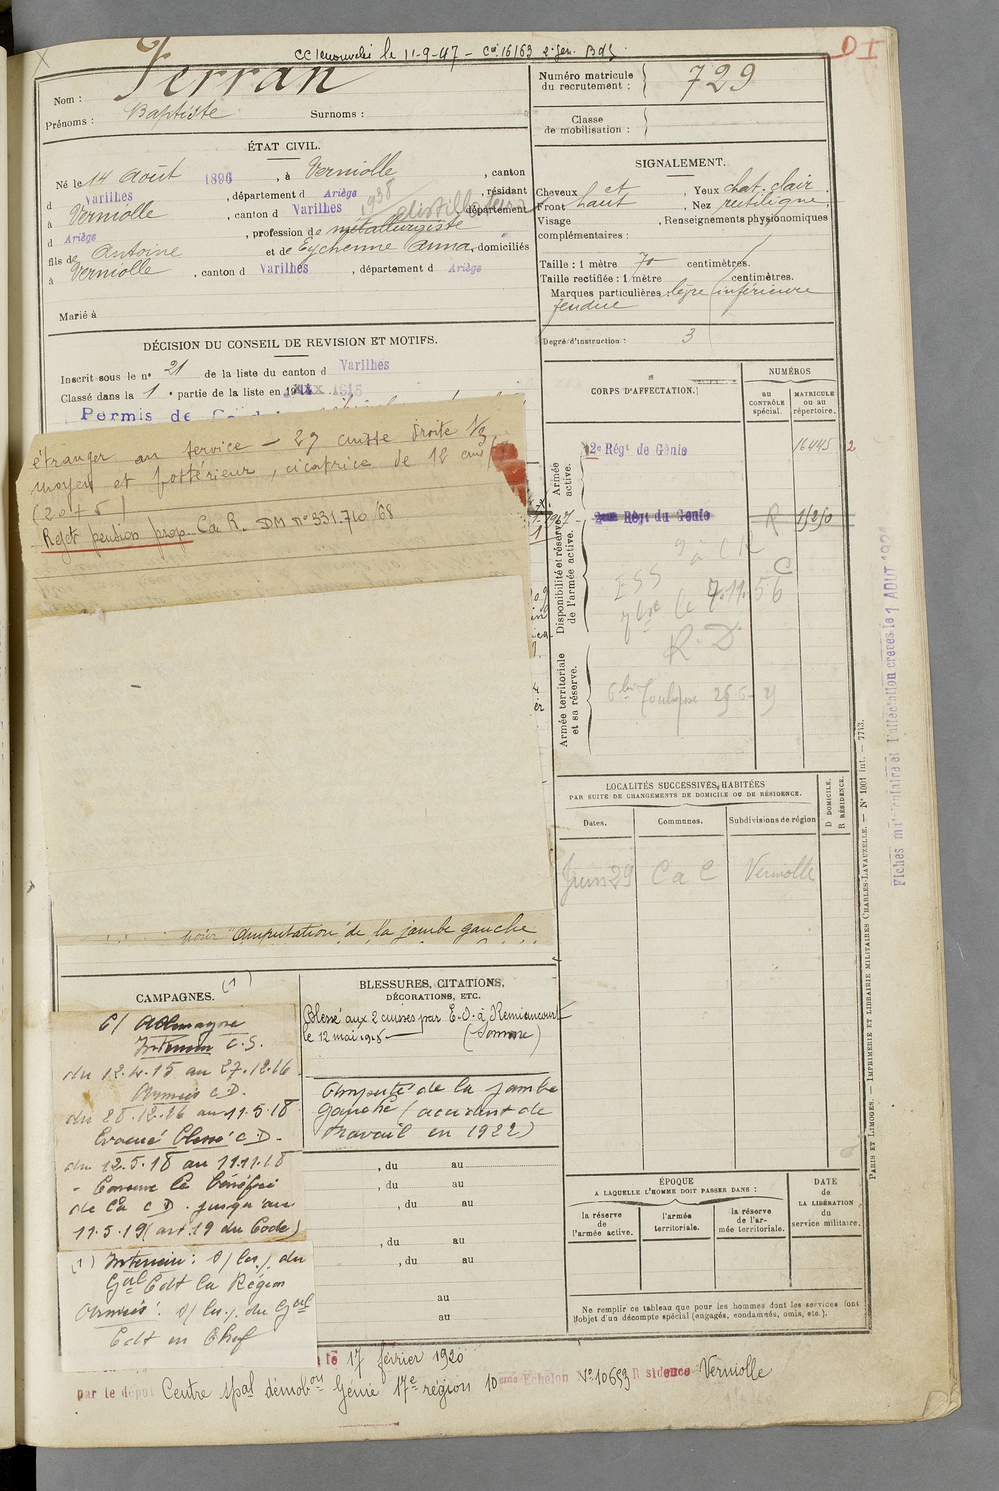 CC renouvelée le 11-9-47 - Cie 16163 2e Gen. BdS
DI
Nom : Ferran
Prénoms : Baptiste Surnoms :
Numéro matricule du recrutement : 729
Classe de mobilisation :
ÉTAT CIVIL.
Né le 14 Août 1896, à Verniolle, canton
d Varilhes, département d Ariège, résidant
à Verniolle, canton d Varilhes, département
1938 distillateur
d Ariège, profession de métallurgiste
fils de Antoine et de Eychenne Anna, domiciliés
à Verniolle, canton d Varilhes, département d Ariège
Marié à
SIGNALEMENT.
Cheveux cht, Yeux chat. clair
Front haut, Nez rectiligne
Visage , Renseignements physionomiques
complémentaires :
Taille : 1 mètre 70 centimètres.
Taille rectifiée : 1 mètre centimètres.
Marques particulières : lèvre inférieure
fendue
Degré d'instruction : 3
DÉCISION DU CONSEIL DE REVISION ET MOTIFS.
Inscrit sous le n° 21 de la liste du canton d Varilhes
Classé dans la 1e partie de la liste en 1915
Permis de
étranger au service - 2) cuisse droite 1/3
moyen et postérieur, cicatrice de 12 cm/
Rejet pension prop. Ca R. DM n° 331.710/68
pour amputation de la jambe gauche
CORPS D'AFFECTATION.
NUMÉROS
au CONTRÔLE spécial.
MATRICULE ou au répertoire.
Armée active.
2e Régt de Génie 16445 2
Disponibilité et réserve de l'armée active.
1917 - 2eme Régt du Génie R
C
ESS
le 7.11.56
R. D.
Armée territoriale et sa réserve.
Toulouse 25-6-29
LOCALITÉS SUCCESSIVES HABITÉES
PAR SUITE DE CHANGEMENTS DE DOMICILE OU DE RÉSIDENCE.
Dates.
Communes.
Subdivisions de région
D DOMICILE.
R RÉSIDENCE.
Juin 29 C a C Verniolle
CAMPAGNES. (1)
C/ Allemagne
Intérieur C.S.
du 12.4.15 au 27.12.16
Armées C.D.
du 28.12.16 au 11.5.18
Evacué blessé C D -
du 12.5.18 au 11.11.18
- Conserve le bénéfice
de la C D. jusqu'au
11.5.19 (art. 19 du Code)
(1) Intérieur : s/ les /. du
Gal Cdt la Région
Armées : s/ les /. du Gal
Cdt en Chef
BLESSURES, CITATIONS,
DÉCORATIONS, ETC.
Blessé aux 2 cuisses par E.O. à Remiencourt
le 12 mai 1918 - (Somme)
Amputé de la jambe
gauche (accident de
travail en 1922)
, du au
, du au
, du au
, du au
, du au
au
au
ÉPOQUE
A LAQUELLE L'HOMME DOIT PASSER DANS :
la réserve de l'armée active.
l'armée territoriale.
la réserve de l'armée territoriale.
DATE de LA LIBÉRATION du service militaire.
Ne remplir ce tableau que pour les hommes dont les services font
l'objet d'un décompte spécial (engagés, condamnés, omis, etc.).
le 17 février 1920
par le dépôt Centre spal démobon Génie 17e région 10eme Echelon N° 10653 Résidence Verniolle
PARIS ET LIMOGES. — IMPRIMERIE ET LIBRAIRIE MILITAIRES CHARLES-LAVAUZELLE. — N° 1001 int. — 7713.